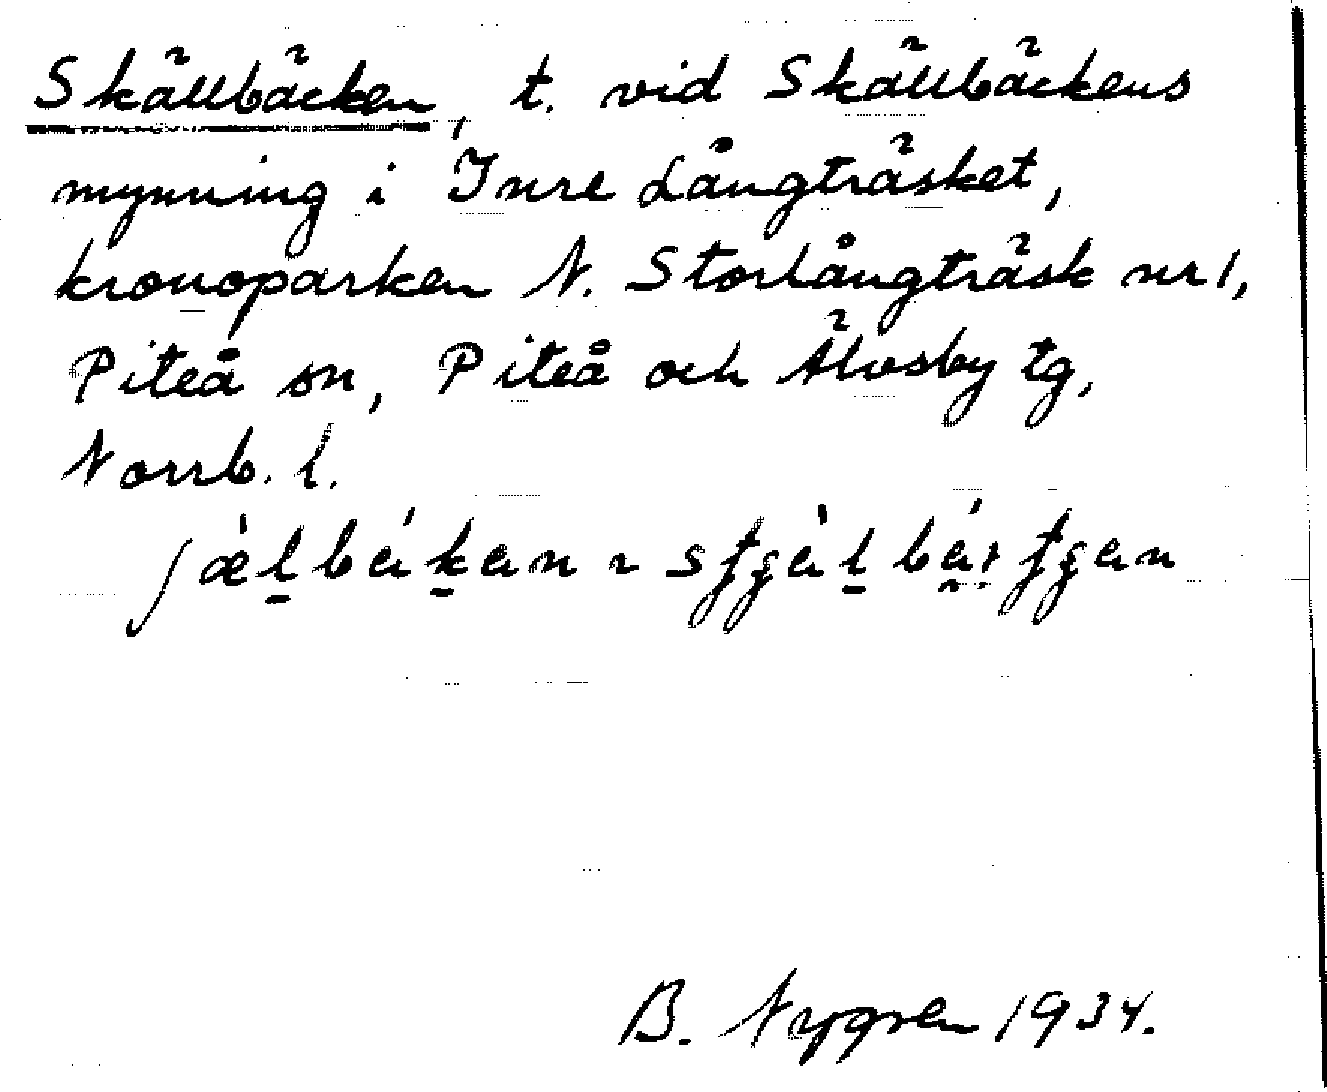 Skällbäcken, t. vid Skällbäckens
mynning i Inre Långträsket,
kronoparken N. Storlångträsk nr 1,
Piteå sn, Piteå och Älvsby tg,
Norrb. l.
B. Nygren 1934.